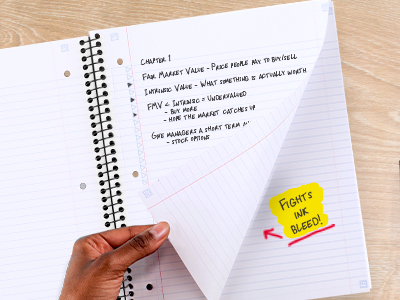 Chapter 1
Fair Market Value - Price people pay to buy/sell
Intrinsic Value - What something is actually worth
FMV < Intrinsic = Undervalued
- Buy more
- Hope the market catches up
Give managers a short term
- Stock options
Fights
ink
bleed!